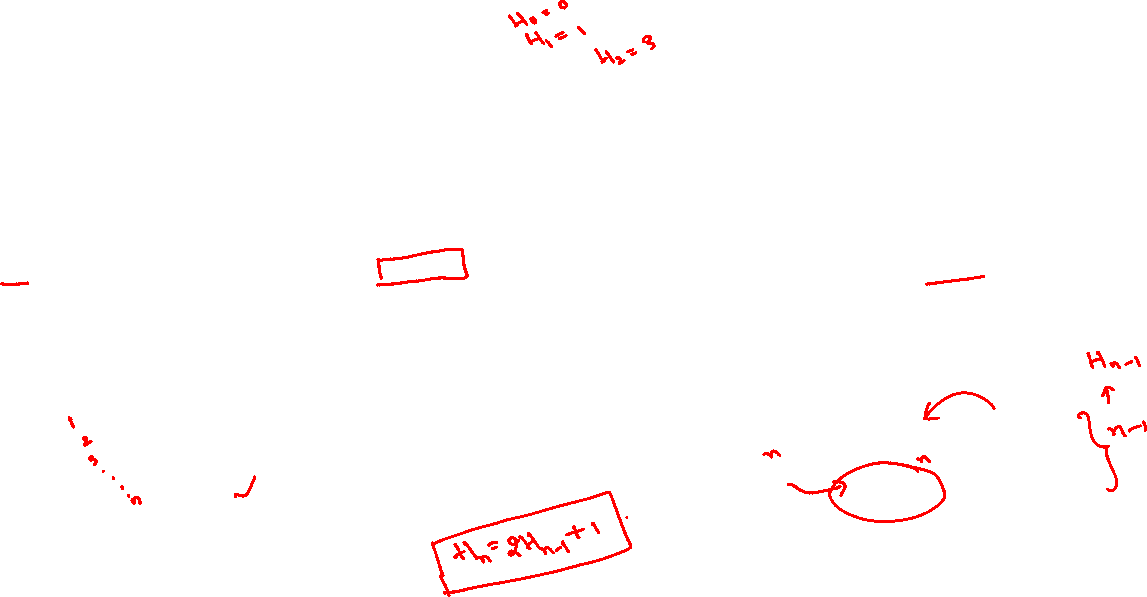 H₀ = 0
H₁ = 1
H₂ = 3
Hₙ₋₁
n-1
1
2
3
...
n
n
n
Hₙ = 2Hₙ₋₁ + 1